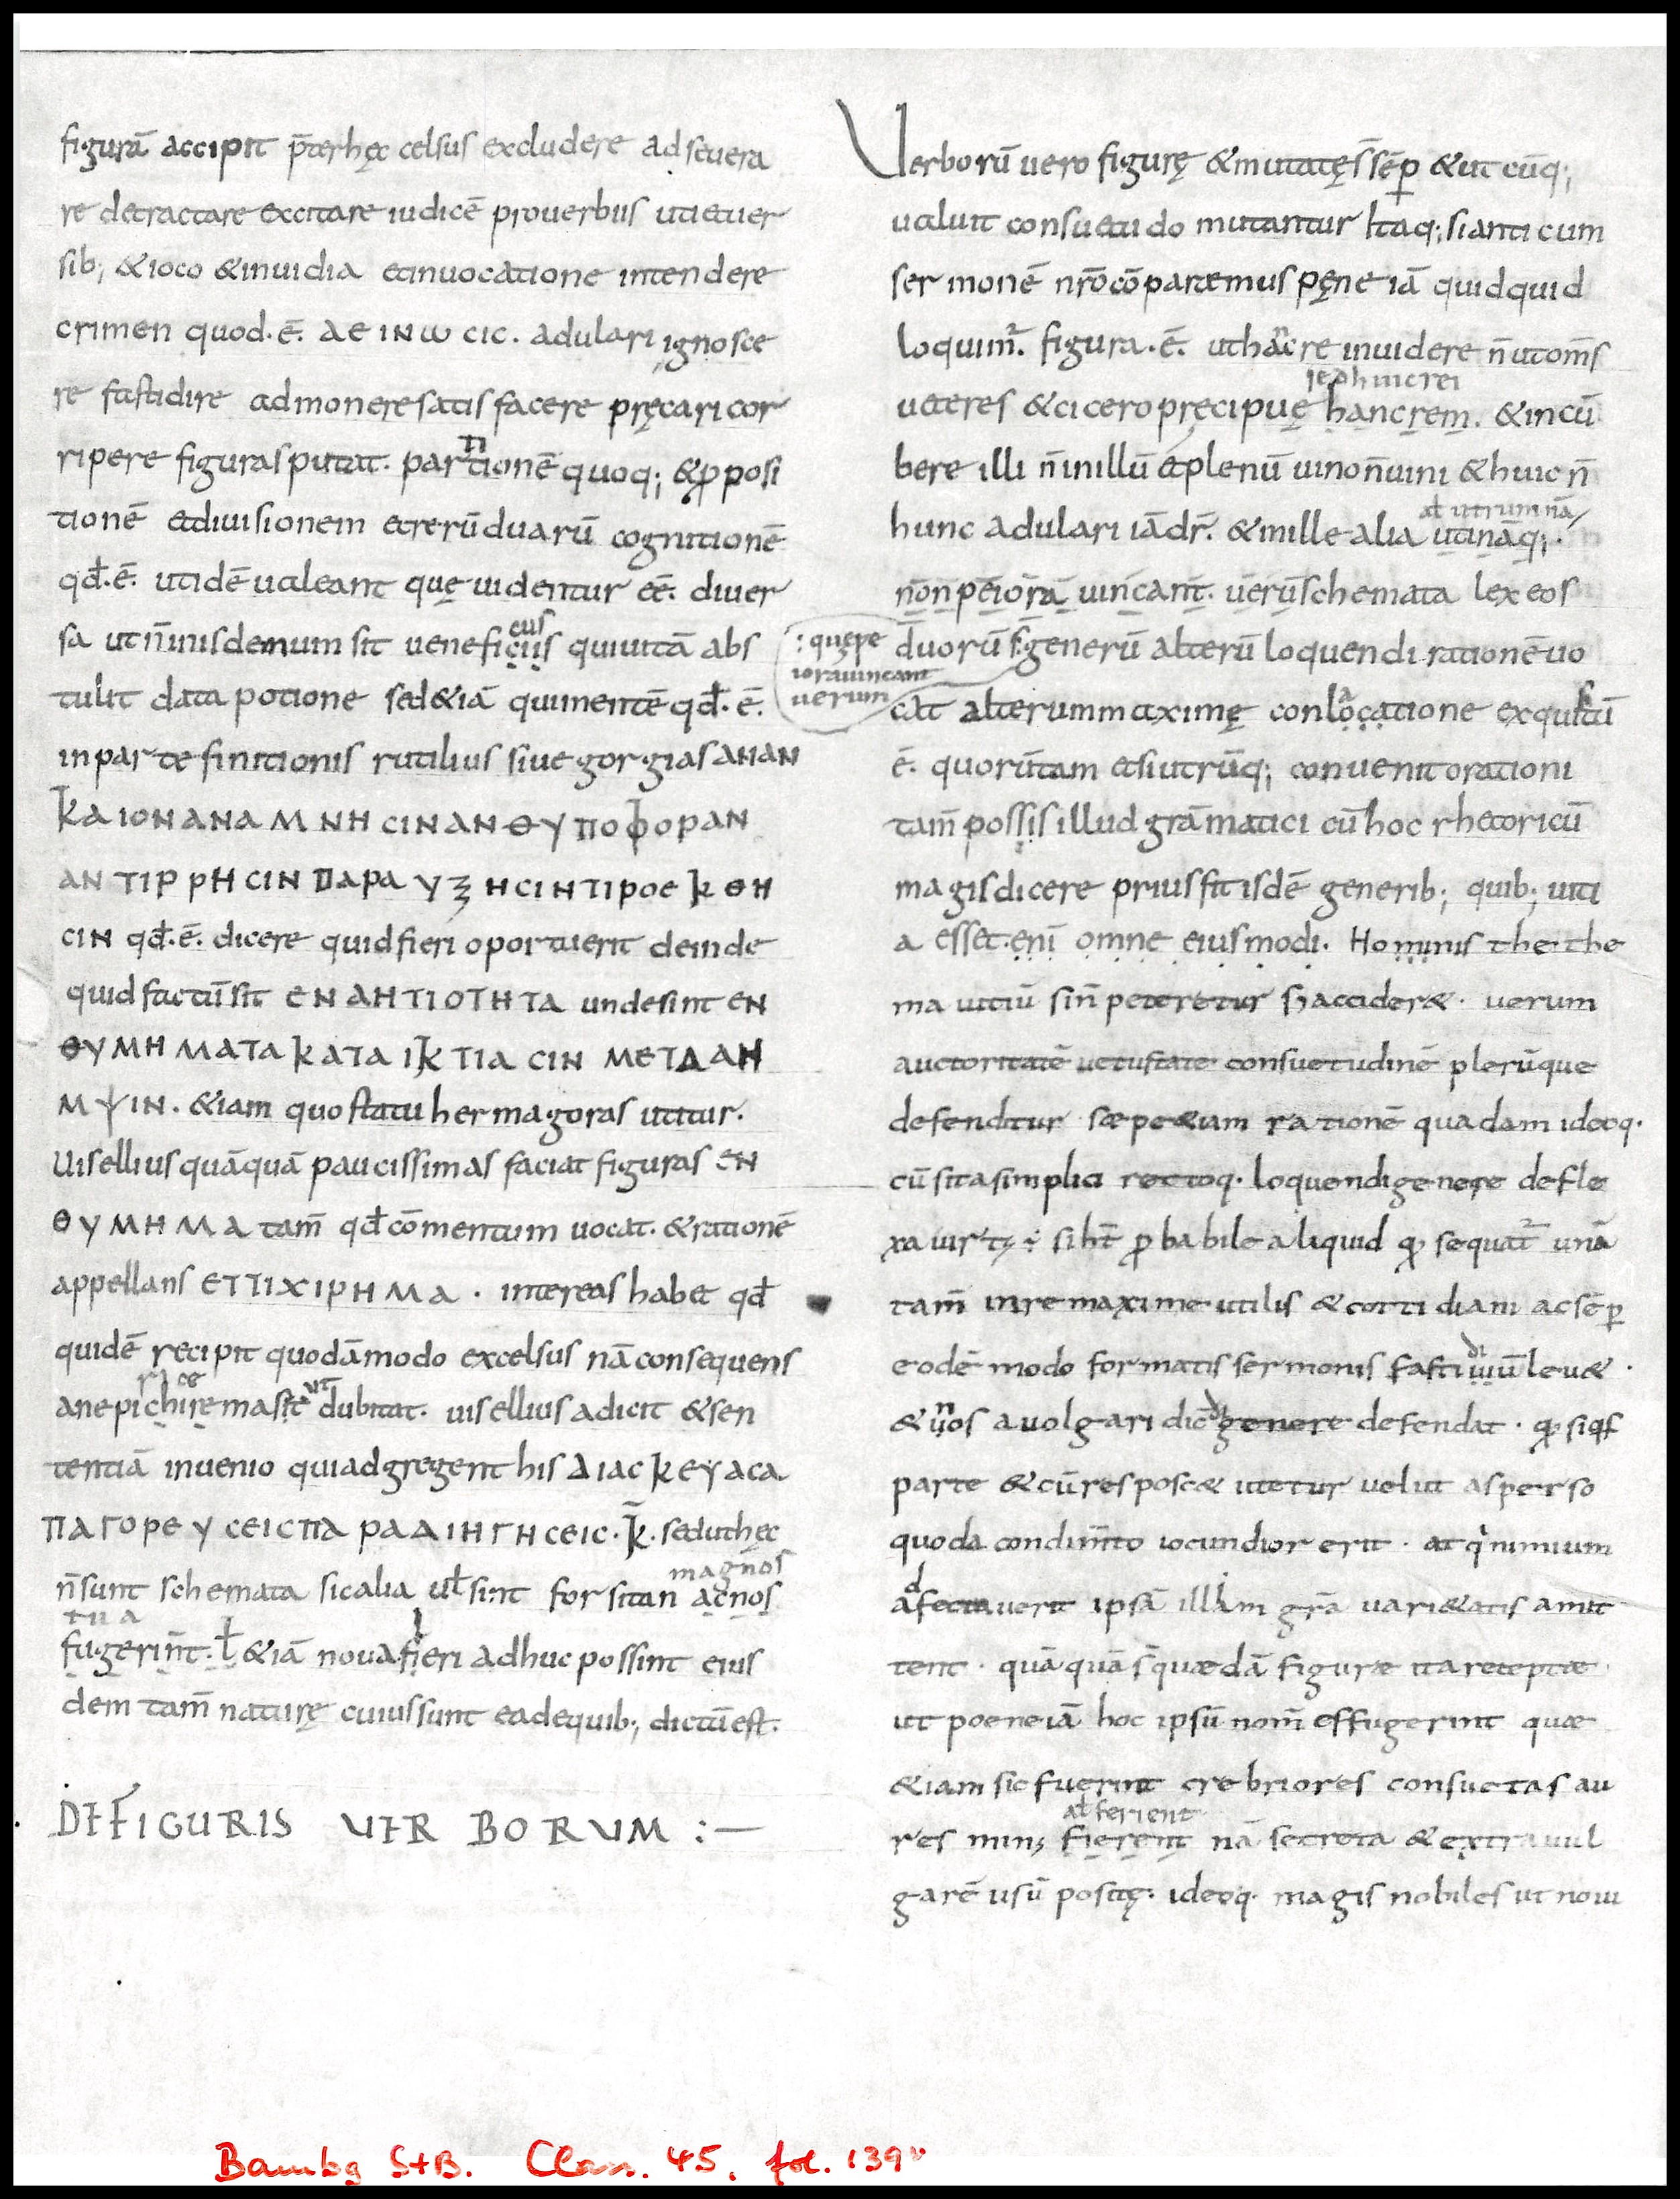 figurā accipit p̄terhęc celsus excludere adseuera
re detractare excitare iudicē prouerbiis utietuer
sib; &ioco &inuidia etinuocatione intendere
crimen quod·ē· ΑΕ ΙΝω CIC. adulari ignosce
re fastidire admonere satisfacere pręcari cor
ripere figurasputat· partionē quoq; &pposi
tionē etdiuisionem etrerūduarū cognitionē
qđ·ē· utidēualeant quę uidentur eē· diuer
sa utn̄iuisdemum sit ueneficiis quiuitā abs
tulit data potione sed&iā quimentē qđ·ē·
inparte finitionis rutilius siue gorgias ΑΝΑΝ
ΚΑΙΟΝ ΑΝΑΜΝΗ CΙΝ ΑΝ ΘΥ ΠΟΦΟΡΑΝ
ΑΝ ΤΙΡ ΡΗ CΙΝ ΠΑΡΑ Υ ξ Η CΙ Ν ΤΙΡΟΕ Κ ΘΗ
CΙΝ qđ·ē· dicere quidfieri oportuerit deinde
quidfactūsit ΕΝ ΑΗΤΙΟΤΗΤΑ undesint ΕΝ
ΘΥΜΗ ΜΑΤΑ ΚΑΤΑ ΙΚ ΤΙΑ CΙΝ ΜΕΤΔΑΗ
ΜΨΙΝ. &iam quo statu hermagoras utitur.
Uisellius quāquā paucissimas faciat figuras ΕΝ
ΘΥΜΗΜΑ tam̄ qđ cōmentum uocat· &rationē
appellans ΕΤΤΙΧΙΡΗΜΑ · intereas habet qđ
quidē recipit quodāmodo excelsus nā consequens
anepichiremasit dubitat· uisellius adicit &sen
tentiā inuenio quiadgregent his ΔΙΑC ΚΕΥΑCΑ
ΠΑΓΟΡΕΥ CΕΙCΠΑ ΡΑΔΙΗΓΗCΕΙC·Κ̄· seduthęc
magnos
n̄sunt schemata sicalia uł sint forsitan acnos
fugerin̄t· ł &iā nouafieri adhuc possint eius
dem tam̄ naturę cuiussunt eadequib; dictūest·
DEFIGURIS UER BORUM :—
Uerborū uero figurę &mutatęs̄ sēp &ut cūq;
ualuit consuetudo mutantur Itaq; sianticum
sermonē nr̄ocōparemus pęne iā quidquid
loquim̄. figura·ē· uthac re inuidere n̄utom̄s
ueteres &cicero pręcipuę hancrem. &incū
bere illi n̄inillū &plenū uinon̄uini &huic n̄
at utrumnā
hunc adulari iādr̄. &mille alia utināq;·
nōnpeiorā uincant· uerūschemata lexeos
: quępe
iorauincant
uerum
duorū s̄ generū alterū loquendi rationēuo
cat alterummaximę conlocatione exquisitū
ē· quorūtam etsiutrūq; conuenitorationi
tam̄ possis illud grāmatici cū hoc rhetoricū
magisdicere priusfit isdē generib; quib; uiti
a esset·enī omne eiusmodi. Hominis the the
ma uitiū sin̄ peteretur s; accider&· uerum
auctoritatē uetustate consuetudinē plerūque
defenditur sæpe&iam rationē quadam ideoq·
cū sitasimplici rectoq· loquendigenere defle
tam̄ inremaxime utilis & cotti diani acsēp
eodē modo formatis sermonis fastidiūleu&·
parte &cūres posc& utetur uelut asperso
quoda condim̄to iocundior erit · at q'nimium
afectauerit ipsā illam grā uari&atis amit
tent· quāquā s̄ quædā figuræ itareceptæ
ut poeneiā hoc ipsū nom̄ effugerint quæ
&iam sic fuerint crebriores consuetas au
at ferient
res min; fierent nā secreta &extrauul
garē usū positę· ideoq· magis nobiles ut noui
Bambg StB. Class. 45, fol. 139v